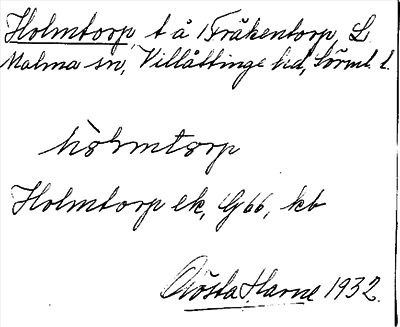 Holmtorp, t å Fråkentorp, L.
Malma sn, Villåttinge hd, Sörml. l.
hòlmtorp
Holmtorp ek, G66, kb
Gösta Harne 1932.